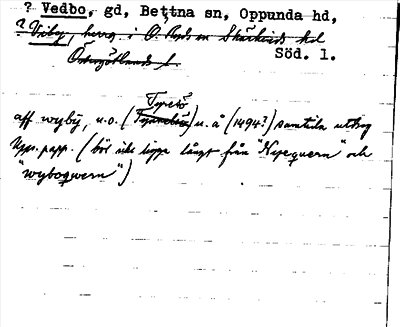 ? Vedbo, gd, Bettna sn, Oppunda hd,
? Viby, herrg. i Ö. Ryds sn Skärkinds hd
Söd. l.
Östergötlands l.
Tyresö
aff wyby, u.o. (Tynnelsö) u. å (1494?) samtida utdrag
Upp. papp. (bör icke ligga långt från "Nyequern" och
"wyboqwern")